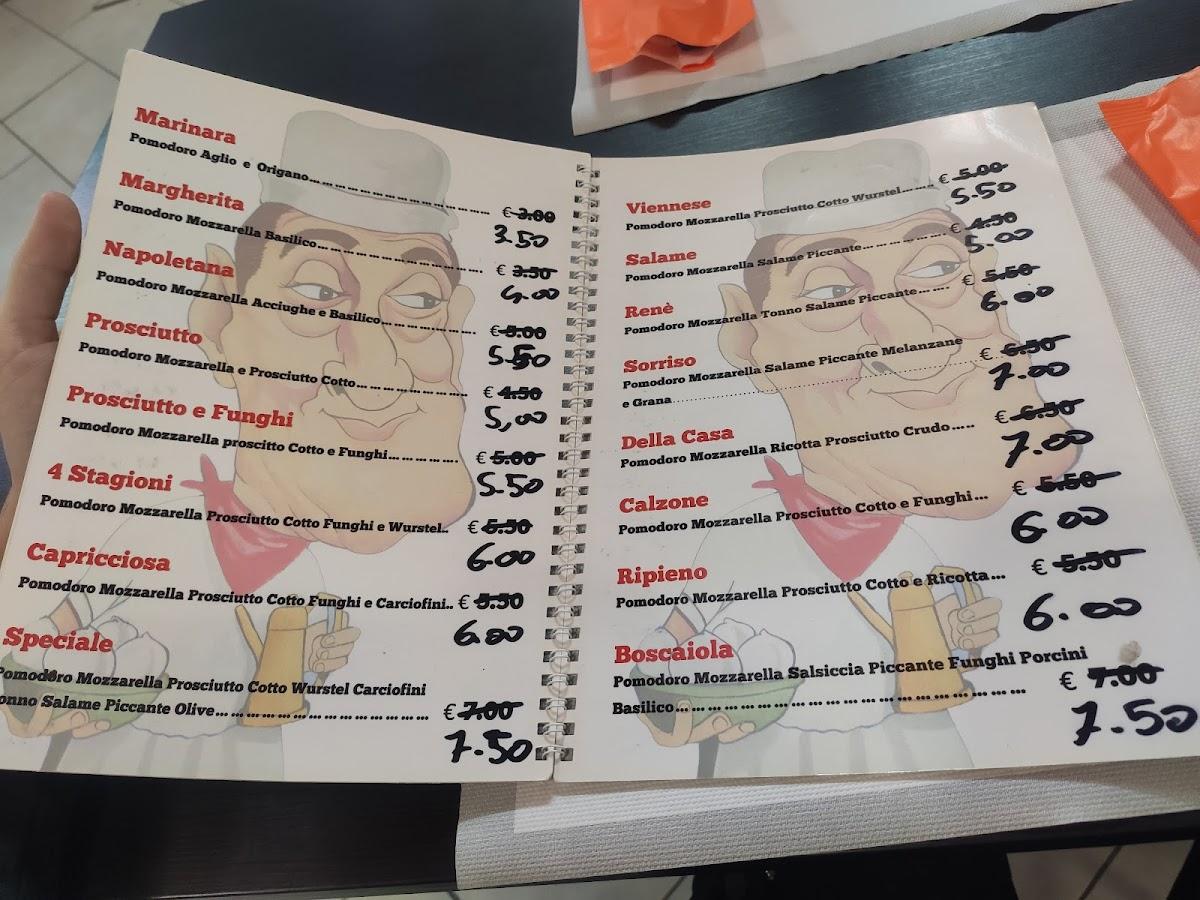 Marinara
Pomodoro Aglio e Origano........................ € 3.00
3.50
Margherita
Pomodoro Mozzarella Basilico........................ € 3.50
4.00
Napoletana
Pomodoro Mozzarella Acciughe e Basilico............... € 5.00
5.50
Prosciutto
Pomodoro Mozzarella e Prosciutto Cotto............... € 4.50
5,00
Prosciutto e Funghi
Pomodoro Mozzarella proscitto Cotto e Funghi............ € 5.00
5.50
4 Stagioni
Pomodoro Mozzarella Prosciutto Cotto Funghi e Wurstel.. € 5.50
6.00
Capricciosa
Pomodoro Mozzarella Prosciutto Cotto Funghi e Carciofini.. € 5.50
6.00
Speciale
Pomodoro Mozzarella Prosciutto Cotto Wurstel Carciofini
onno Salame Piccante Olive........................ € 7.00
7.50
Viennese
Pomodoro Mozzarella Prosciutto Cotto Wurstel...... € 5.00
5.50
Salame
Pomodoro Mozzarella Salame Piccante............ € 4.50
5.00
Renè
Pomodoro Mozzarella Tonno Salame Piccante...... € 5.50
6.00
Sorriso
Pomodoro Mozzarella Salame Piccante Melanzane
e Grana........................ € 6.50
7.00
Della Casa
Pomodoro Mozzarella Ricotta Prosciutto Crudo..... € 6.50
7.00
Calzone
Pomodoro Mozzarella Prosciutto Cotto e Funghi... € 5.50
6.00
Ripieno
Pomodoro Mozzarella Prosciutto Cotto e Ricotta... € 5.50
6.00
Boscaiola
Pomodoro Mozzarella Salsiccia Piccante Funghi Porcini
Basilico........................ € 7.00
7.50